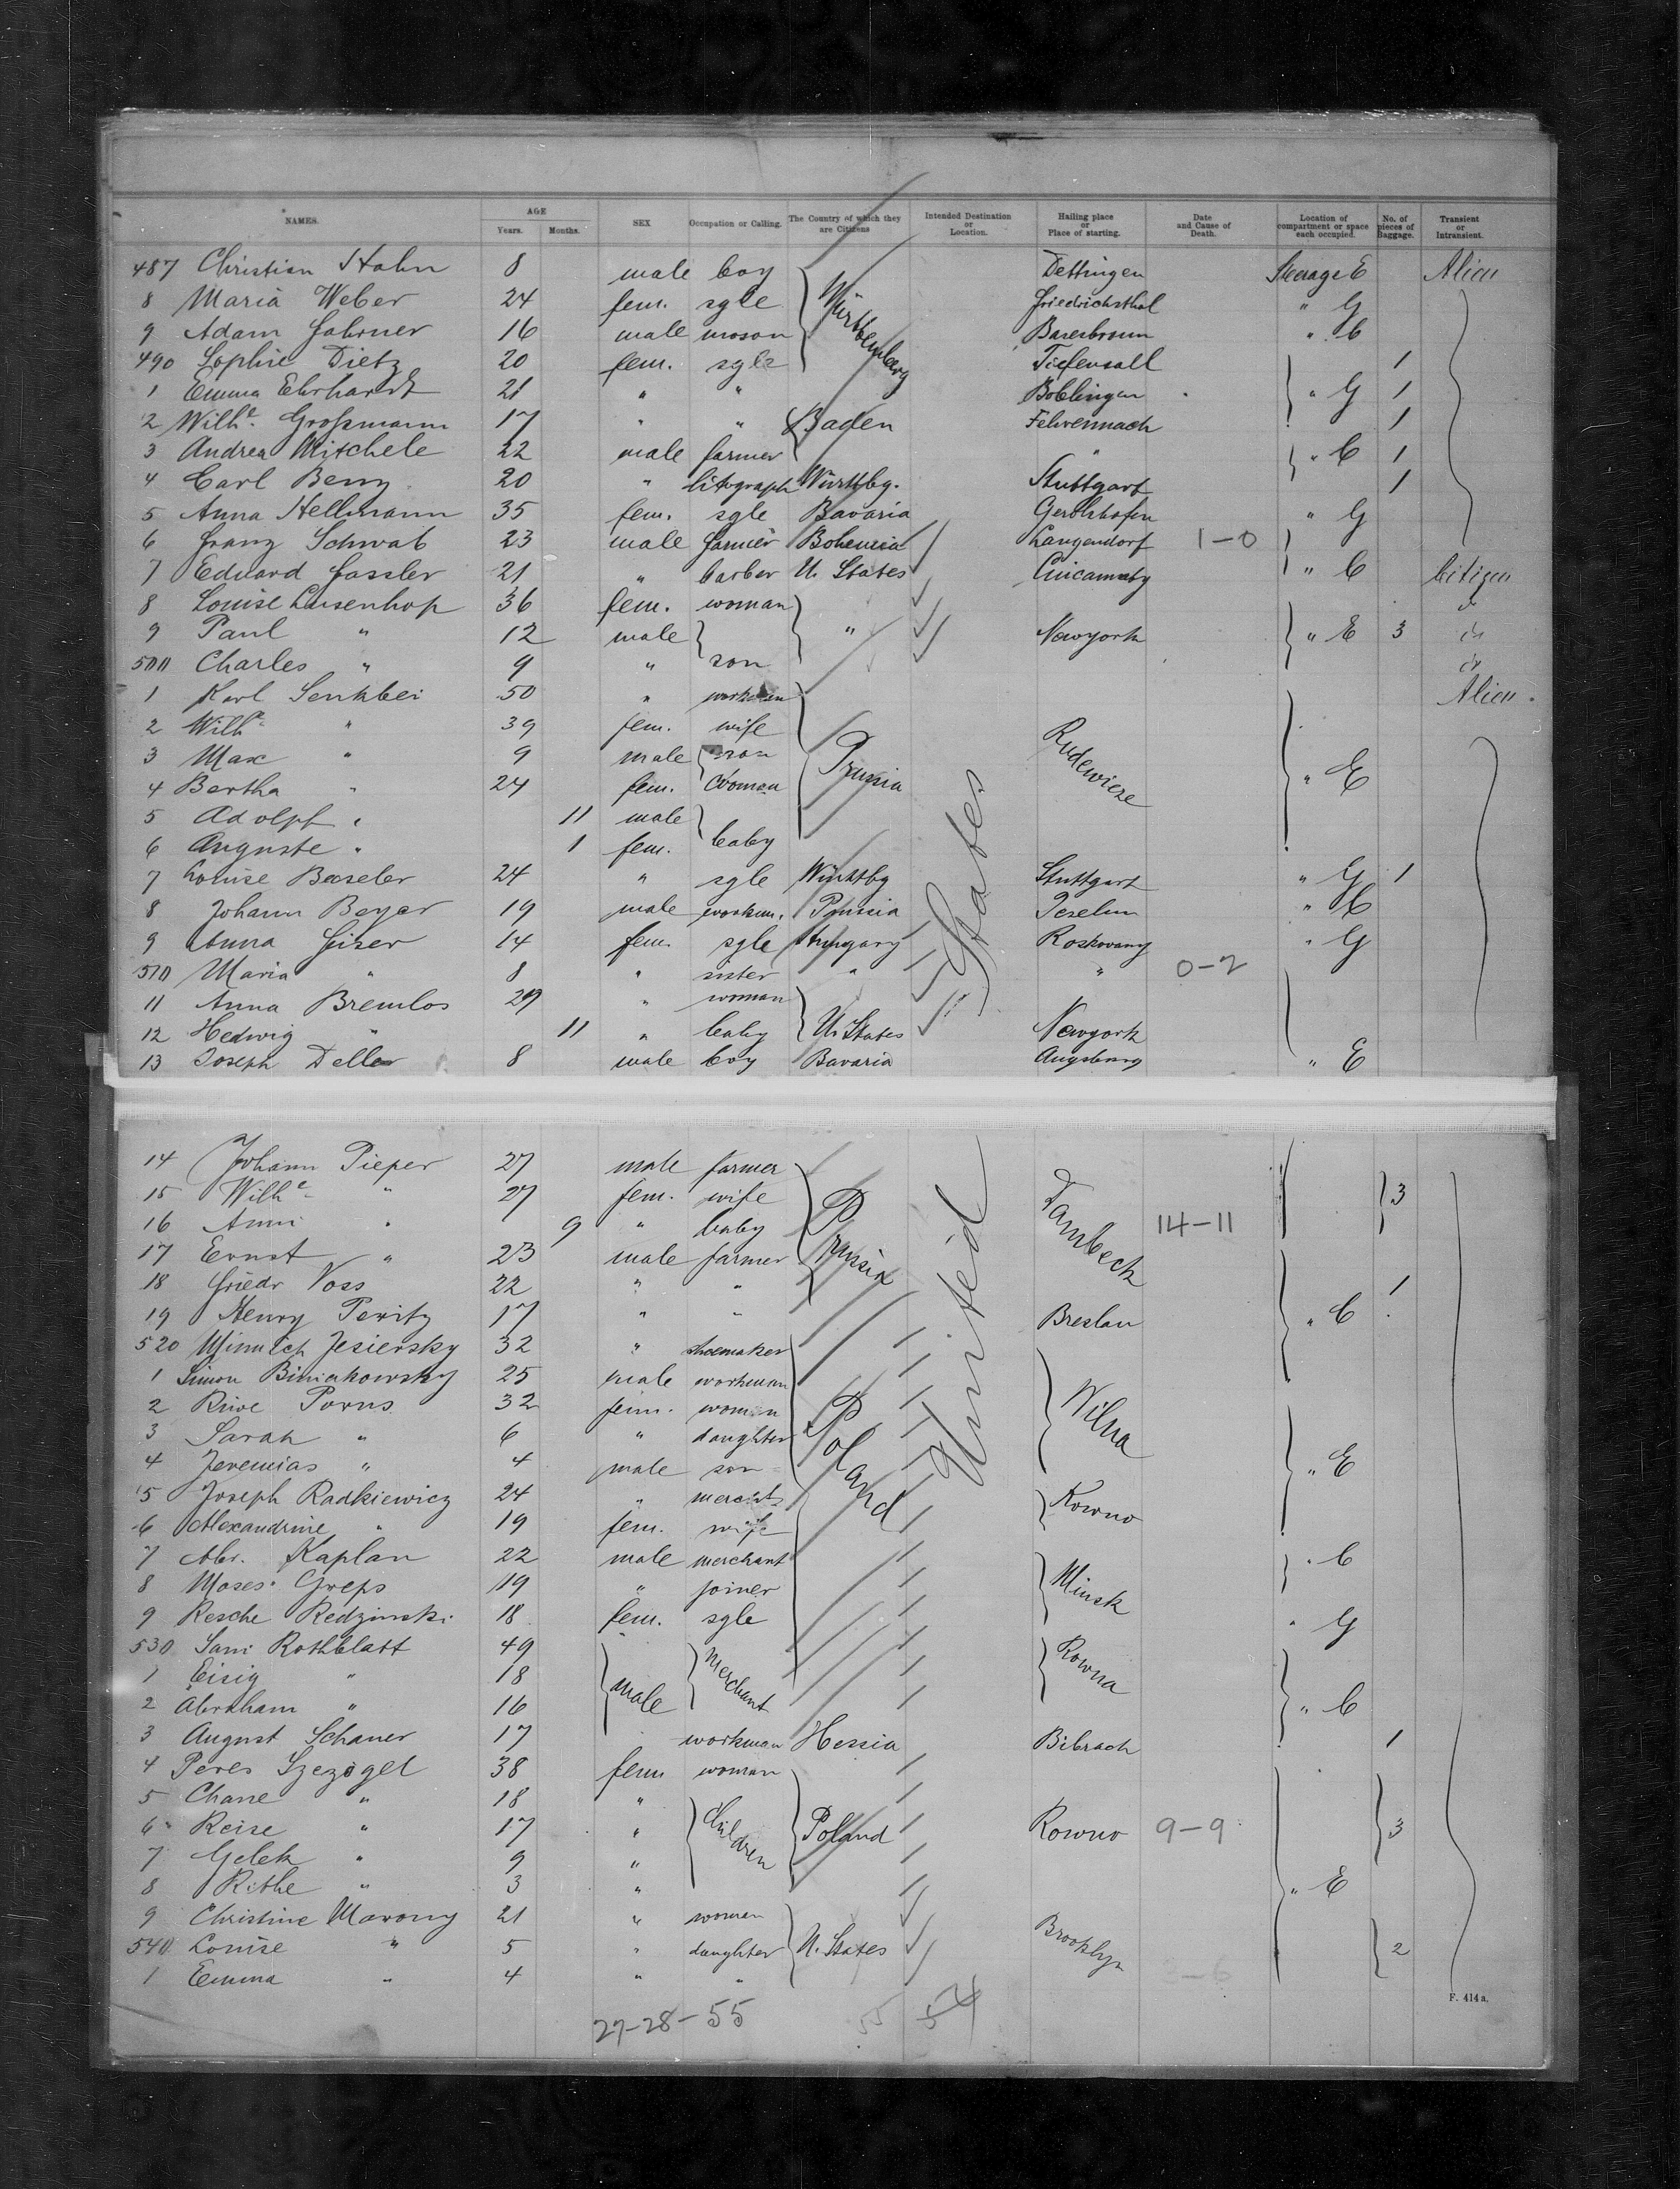 NAMES. AGE Years. Months. SEX Occupation or Calling. The Country of which they are Citizens Intended Destination or Location. Hailing place or Place of starting. Date and Cause of Death. Location of compartment or space each occupied. No. of pieces of Baggage. Transient or Intransient.
487 Christian Hahn 8 male boy Dettingen Steerage E Alien
8 Maria Weber 24 fem. sgle Württemberg Friedrichsthal " G
9 Adam 16 male mason " C
490 Sophie Dietz 20 fem. sgle 1
1 Emma Ehrhardt 21 " " Böblingen " G 1
2 Wilhe. Großmann 17 " " Baden 1
3 Andrea Mitschele 22 male farmer " " C 1
4 Carl Berry 20 " litograph Württbg. Stuttgart 1
5 Anna Hellmann 35 fem. sgle Bavaria Gerolzhofen " G
6 Franz Schwab 23 male farmer Bohemia Langendorf 1-0
7 Eduard Fassler 21 " barber U. States " C Citizen
8 Louise Lusenhop 36 fem. woman
9 Paul " 12 male " Newyork " E 3
500 Charles " 9 " son
1 Karl Senkbei 50 " workman Alien
2 Wilhe " 39 fem. wife
3 Max " 9 male son Prussia
4 Bertha " 24 fem. woman " E
5 Adolph " 11 male
6 Auguste " 1 fem. baby
7 Louise Baseler 24 " sgle Württbg Stuttgart " G 1
8 Johann Beyer 19 male workm. Prussia " C
9 Anna Giser 14 fem. sgle Hungary " G
510 Maria " 8 " sister " " 0-2
11 Anna Bremlos 29 " woman
12 Hedwig " 11 " baby U. States Newyork
13 Joseph Deller 8 male boy Bavaria Augsburg " E
14 Johann Pieper 27 male farmer
15 Wilhe " 27 fem. wife 3
16 Anni " 9 " baby Prussia Dambeck 14-11
17 Ernst " 23 male farmer
18 Friedr Voss 22 " " 1
19 Henry Peritz 17 " " United States Breslau " C
520 Jesiersky 32 " shoemaker
1 Simon Biniakowsky 25 male workman
2 Riwe Porus 32 fem. woman Poland Wilna
3 Sarah " 6 " daughter
4 Jeremias " 4 male son " E
5 Joseph Radkiewicz 24 " Kowno
6 Alexandrine " 19 fem. wife
7 Abr. Kaplan 22 male merchant " C
8 Moses Greps 19 " joiner Minsk
9 Resche Redzinski 18 fem. sgle " G
530 Sam Rothblatt 49
1 Eisig " 18 male merchant Rowna
2 Abraham " 16 " C
3 August Schaner 17 workman Hessia Bibrach 1
4 Peres Szezogel 38 fem woman
5 Chane " 18 "
6 Reise " 17 " children Poland Kowno 9-9 3
7 Gelek " 9 "
8 Rithe " 3 " " E
9 Christine Mavony 21 " woman
540 Louise " 5 " daughter U. States Brooklyn 2
1 Emma " 4 " "
F. 414a.
27-28-55 55 54